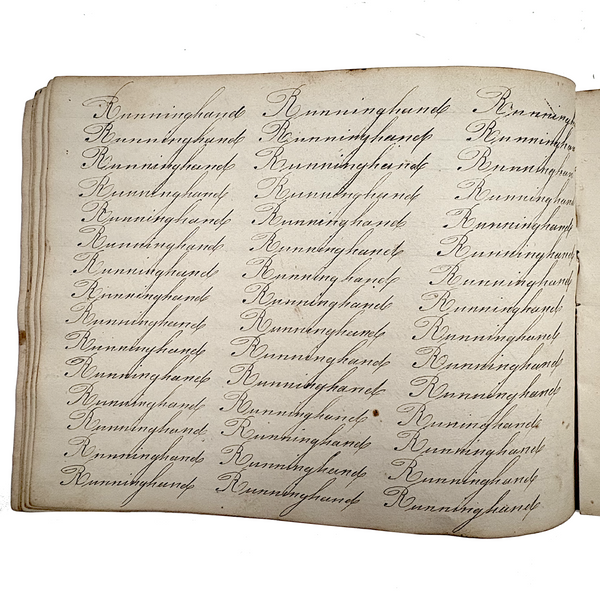 Runninghand Runninghand Runningh
Runninghand Runninghand Runninghan
Runninghand Runninghand Runninghan
Runninghand Runninghand Runninghand
Runninghand Runninghand Runninghand
Runninghand Runninghand Runninghand
Runninghand Runninghand Runninghand
Runninghand Runninghand Runninghand
Runninghand Runninghand Runninghand
Runninghand Runninghand Runninghand
Runninghand Runninghand Runninghand
Runninghand Runninghand Runninghand
Runninghand Runninghand Runninghand
Runninghand Runninghand Runninghand
Runninghand Runninghand Runninghand